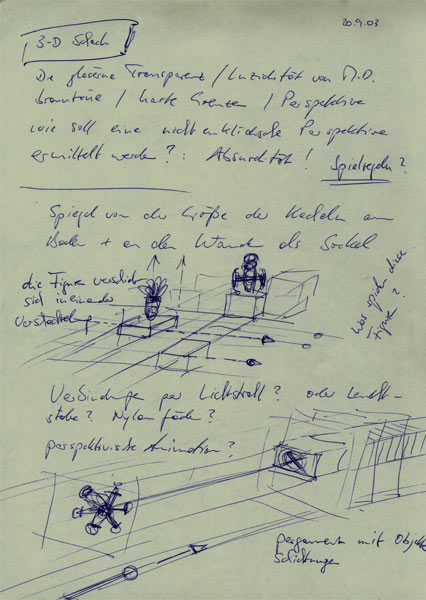 20.9.03
3-D Schach
Die gläserne Transparenz / Luzidität von M.D.
Brauntöne / harte Grenzen / Perspektive
wie soll eine nicht euklidische Perspektive
ermittelt werden? : Absurdität! Spielregeln?
Spiegel von der Größe der Kacheln am
Boden + an den Wänden als Sockel
die Figuren
sich ineinander
Verschachtelung
Was spielt diese
Figur?
Verbindungen per Lichtstrahl? oder Leucht-
stäbe? Nylonfäden?
perspektivische Animation?
pergament mit Objekt
Schichtungen